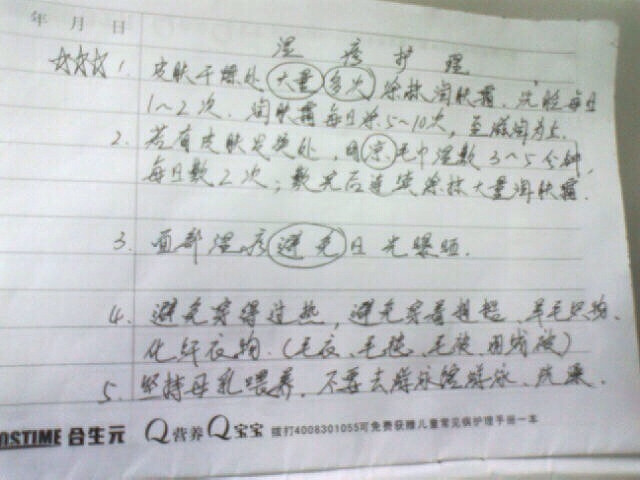 年 月 日
湿疹护理
☆☆☆ 1. 皮肤干燥处大量多次涂抹润肤霜. 洗脸每日
1~2次. 润肤霜每日涂5~10次, 至滋润为止.
2. 若有皮肤发炎处, 用凉毛巾湿敷3~5分钟,
每日敷2次; 敷完后连续涂抹大量润肤霜.
3. 面部湿疹避免日光曝晒.
4. 避免穿得过热, 避免穿着粗糙、羊毛织物、
化纤衣物. (毛衣、毛毯、毛被、用线被)
5. 坚持母乳喂养. 不要去游泳馆游泳、洗澡.
OSTIME 合生元 Q营养Q宝宝 拨打4008301055可免费获赠儿童常见病护理手册一本